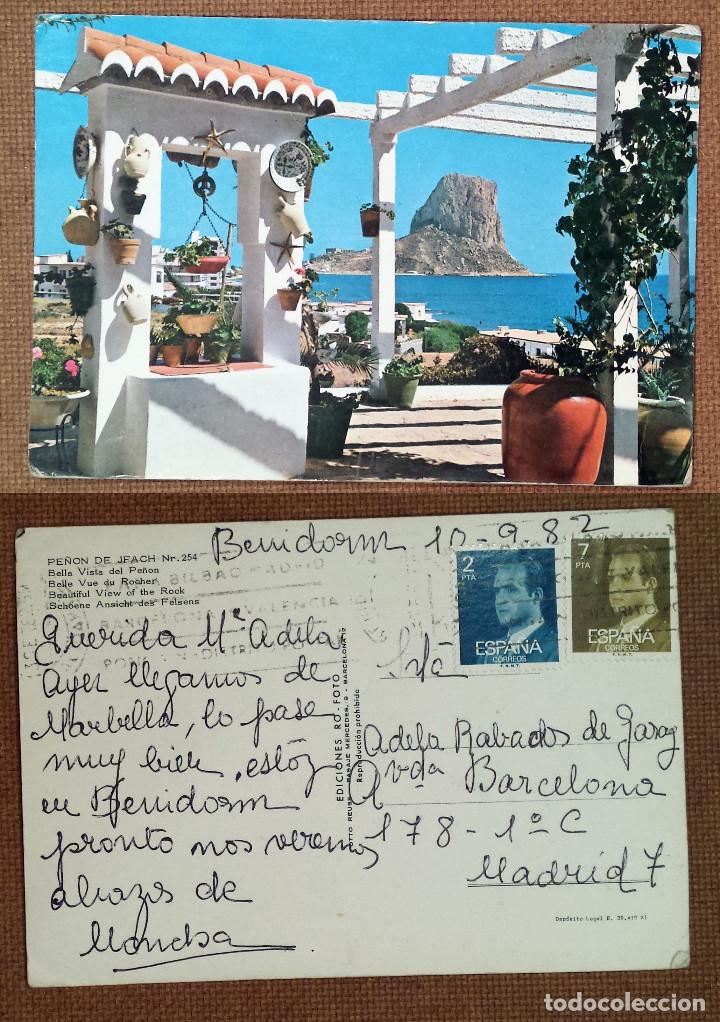 Benidorm 10-9-82
PEÑON DE JFACH Nr. 254
Bella Vista del Peñon
Belle Vue du Rocher
Beautiful View of the Rock
Schoene Ansicht des Felsens
2
PTA
ESPAÑA
CORREOS
F.N.M.T.
7
PTA
ESPAÑA
CORREOS
F.N.M.T.
BILBAO
BARCELONA VALENCIA
DISTRITO
Querida Mª Adela
Ayer llegamos de
Marbella, lo pase
muy bien, estoy
en Benidorm
pronto nos veremos
abrazos de
EDICIONES RO-FOTO
PASAJE MERCEDES, 9 - BARCELONA-12
Reproducción prohibida
Srta
Adela Rabados de Garay
Avda Barcelona
178-1º C
Madrid 7
Depósito Legal B. 39.419 XI
todocoleccion